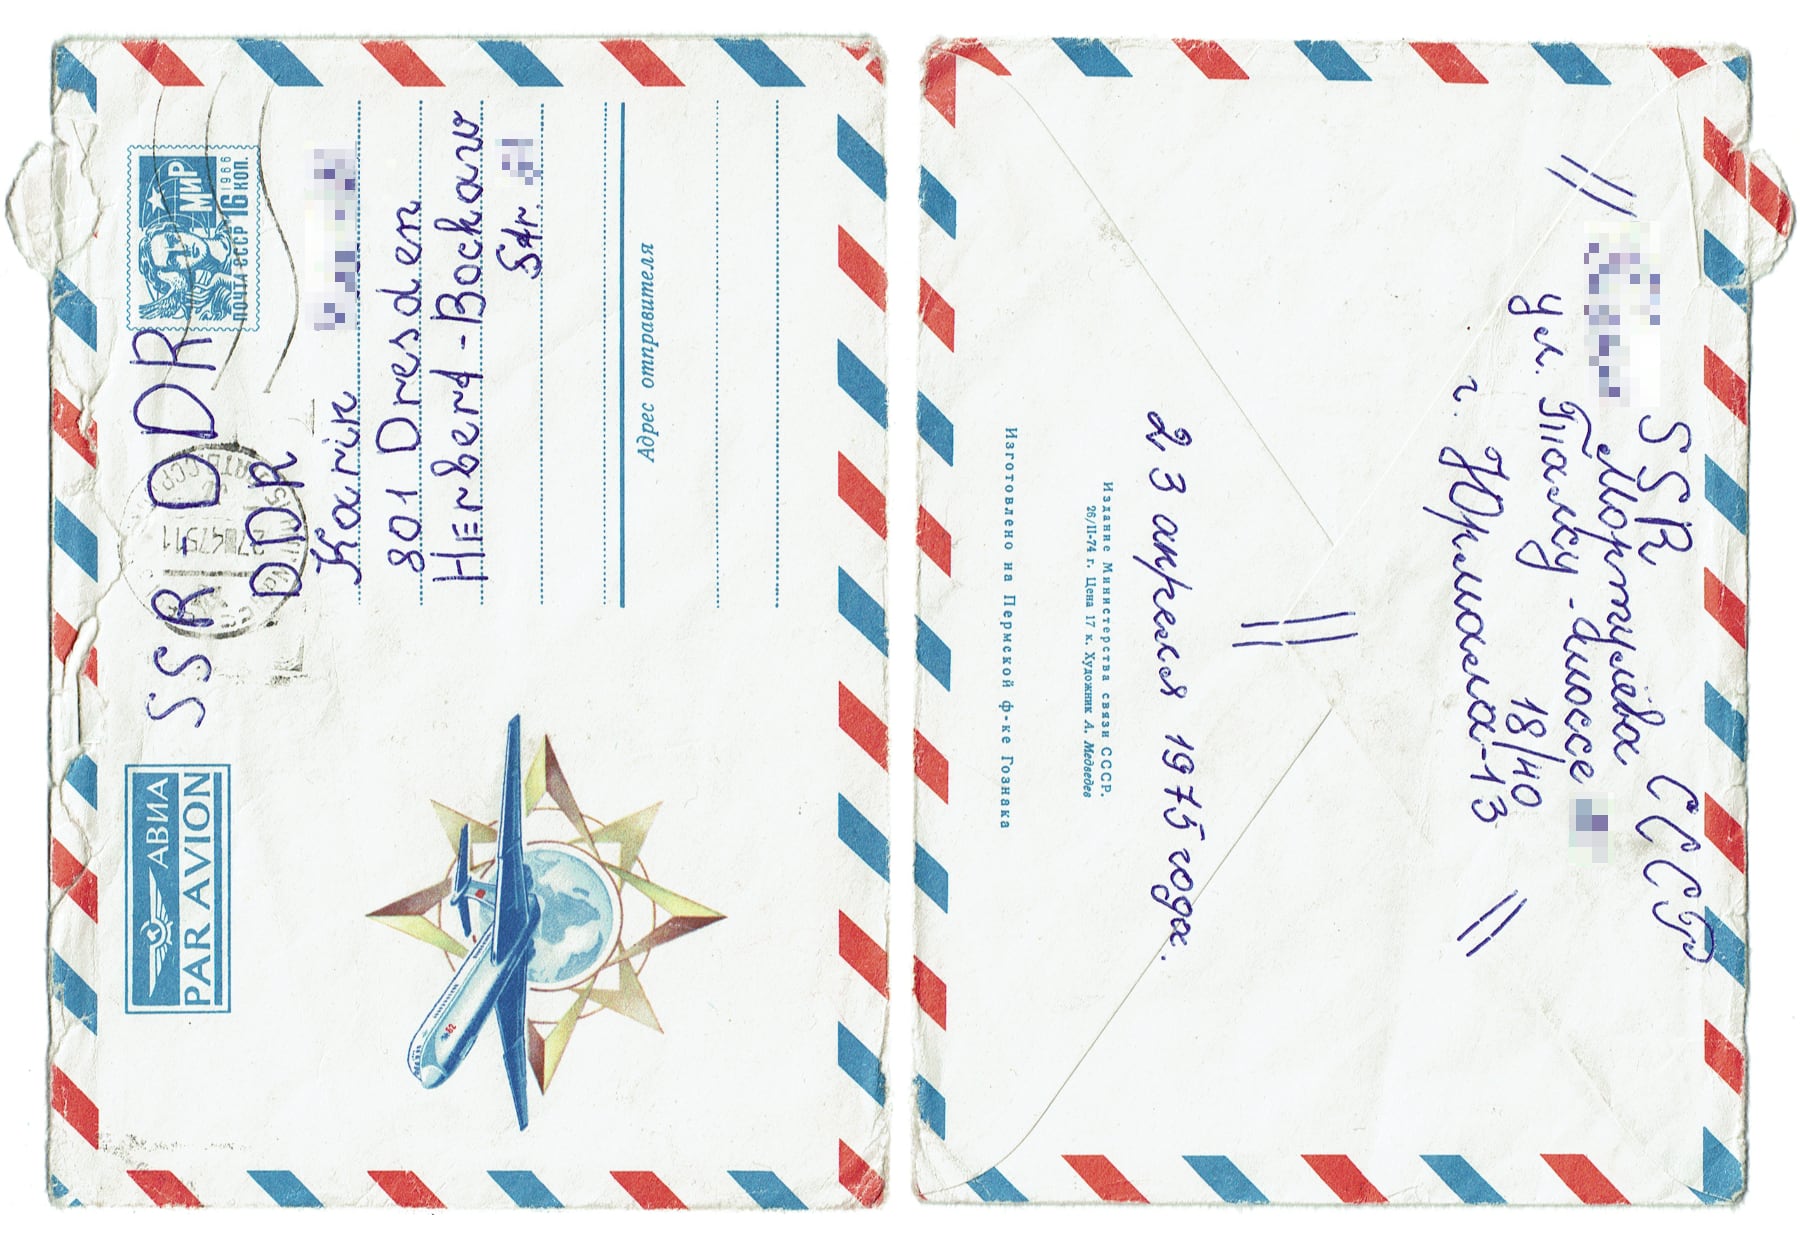 АВИА
PAR AVION
МИР
1966
16 КОП.
ПОЧТА СССР
SSR DDR
DDR
Karin
801 Dresden
Herbert-Bochow
Str.
Адрес отправителя
СССР
SSR
ул. Талсу-шоссе
18/40
г. Юрмала-13
23 апреля 1975 года.
Издание Министерства связи СССР.
26/II-74 г. Цена 17 к. Художник А. Медведев
Изготовлено на Пермской ф-ке Гознака